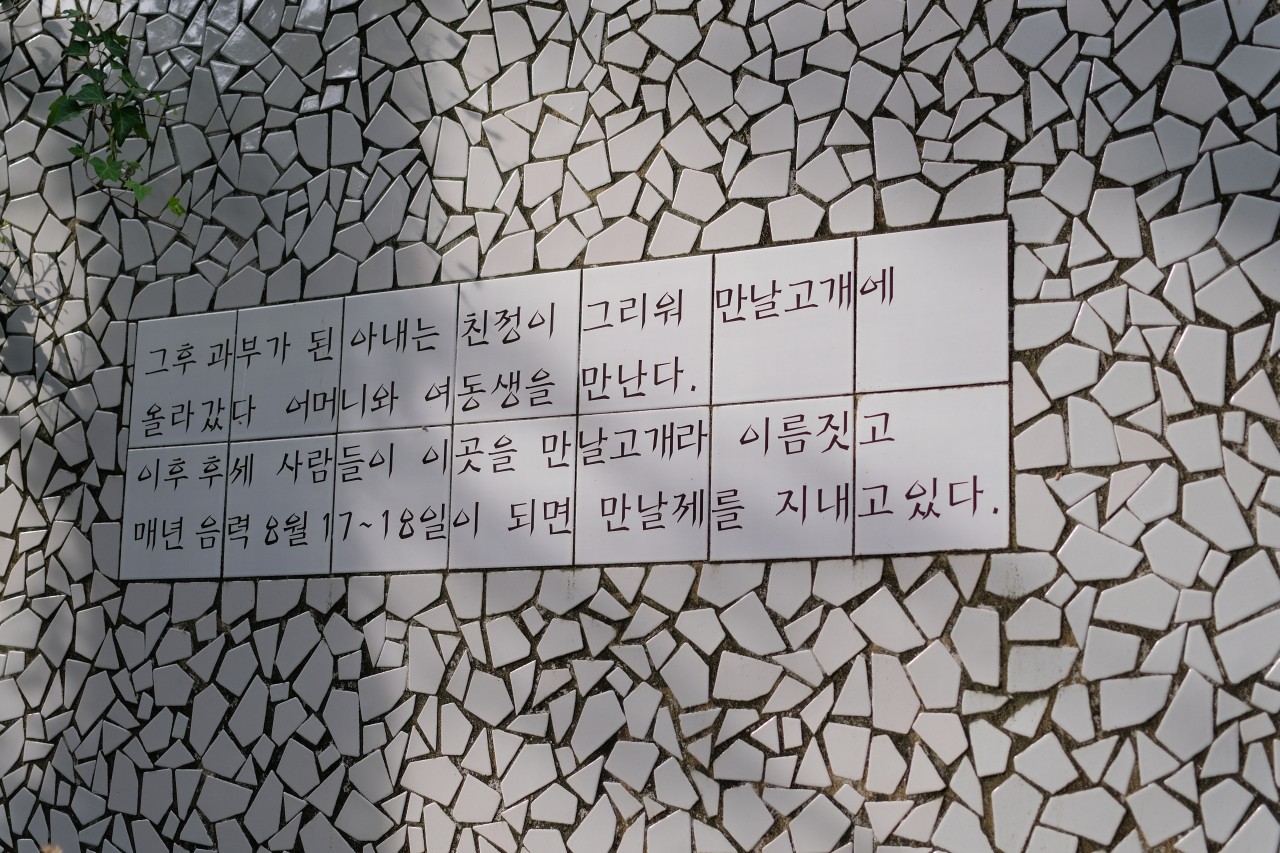 그후 과부가 된 아내는 친정이 그리워 만날고개에
올라갔다 어머니와 여동생을 만난다.
이후 후세 사람들이 이곳을 만날고개라 이름짓고
매년 음력 8월 17~18일이 되면 만날제를 지내고 있다.